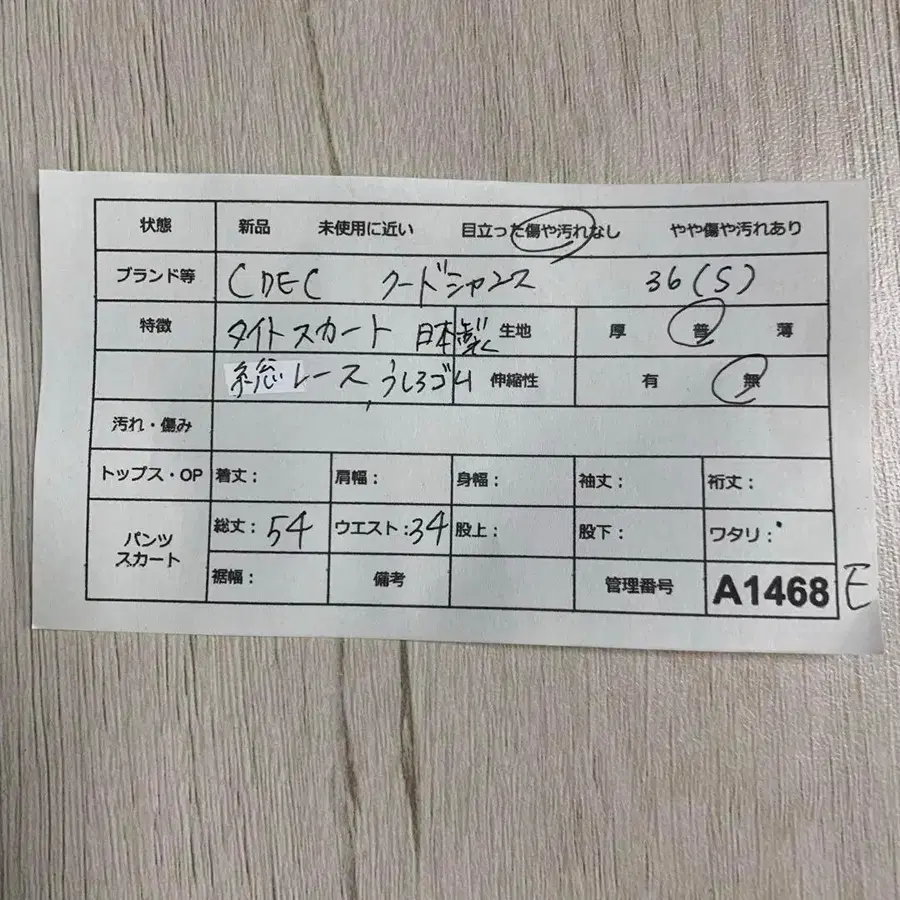 状態 新品 未使用に近い 目立った傷や汚れなし やや傷や汚れあり
ブランド等 CDEC クードシャンス 36(S)
特徴 タイトスカート 日本製 生地 厚 普 薄
総レース、うしろゴム 伸縮性 有 無
汚れ・傷み
トップス・OP 着丈: 肩幅: 身幅: 袖丈: 裄丈:
パンツ スカート 総丈:54 ウエスト:34 股上: 股下: ワタリ:
裾幅: 備考 管理番号 A1468 E